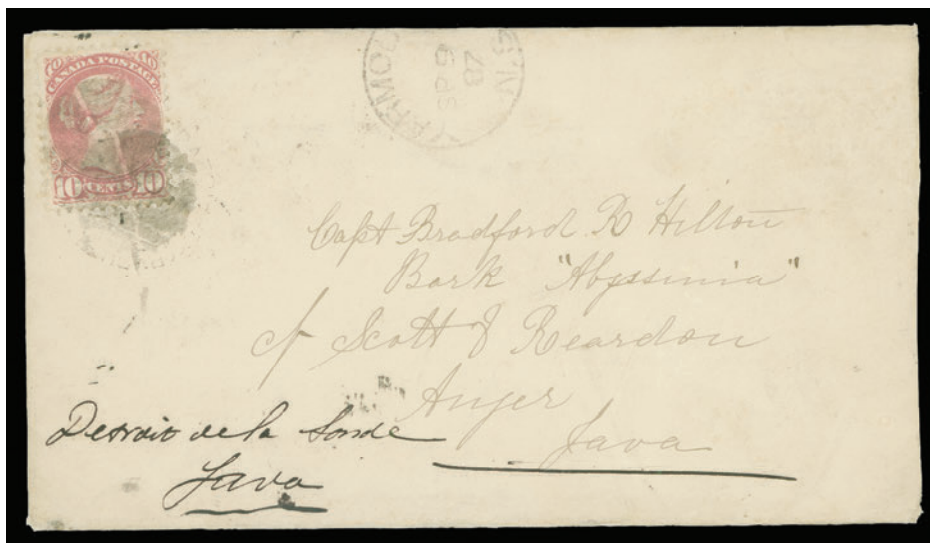 CANADA POSTAGE
10 CENTS 10
Capt Bradford R Hilton
Bark "Abyssinia"
c/ Scott & Reardon
Anjer
Java
Detroit de la Sonde
Java